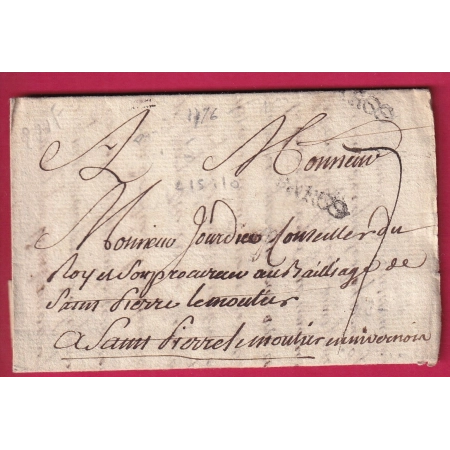 1776
A Monsieur
Monsieur Jourdier Conseiller du
Roy et Son procureur au Bailliage de
Saint Pierre lemoutier
a Saint Pierre le moutier en nivernois